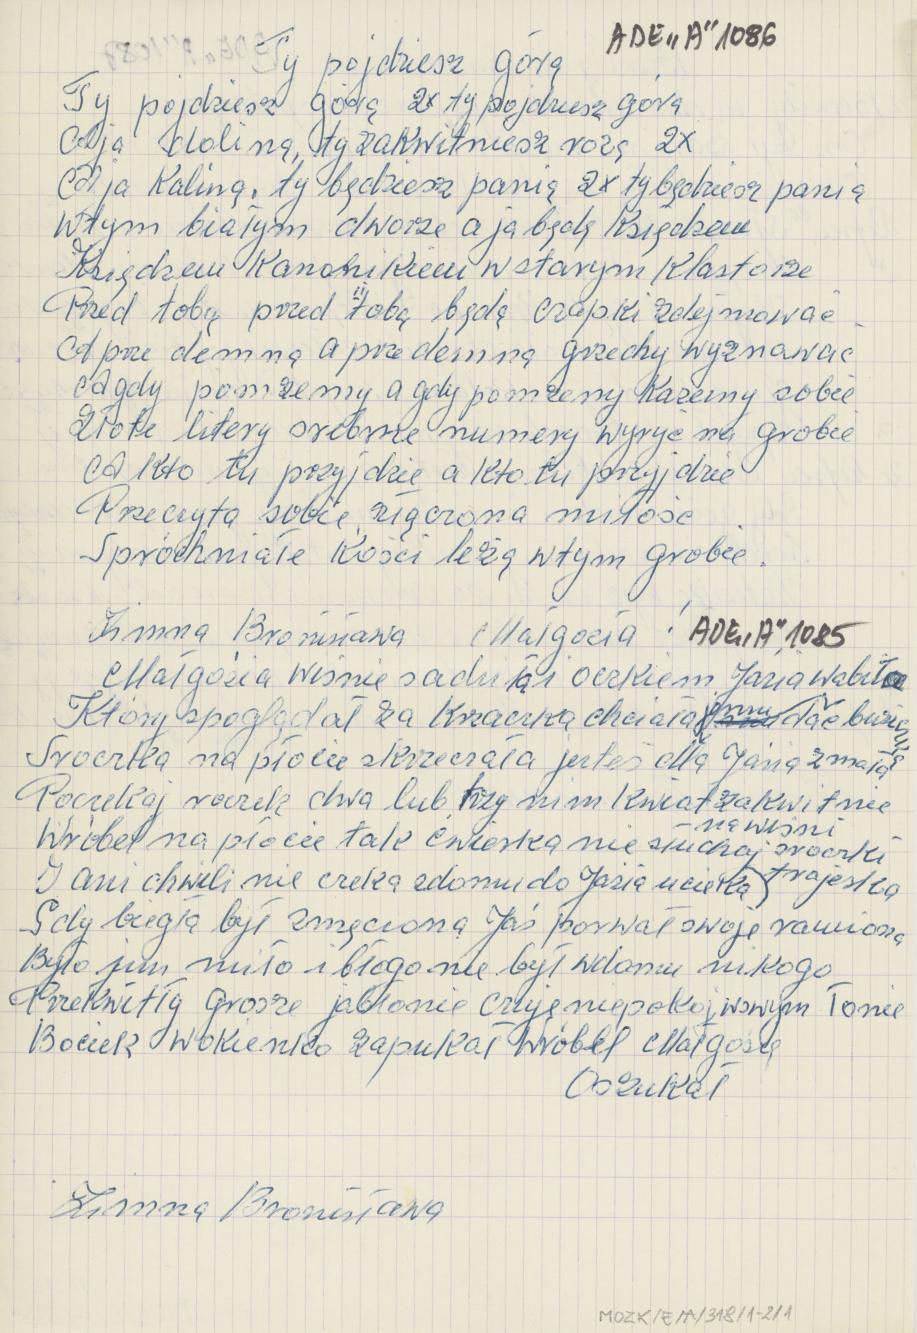 ADE„A"1086
Ty pojdziesz górą
Ty pojdziesz górą 2x ty pojdziesz górą
A ja doliną, ty zakwitniesz rożą 2x
A ja Kaliną, ty będziesz panią 2x ty będziesz panią
wtym białym dworze a ja będę Księdzem
Księdzem Kanonikiem w starym Klastorze
Przed tobą przed tobą będą czapki zdejmować
A prze demną a prze demną grzechy wyznawać
A gdy pomrzemy a gdy pomrzemy Każemy sobie
Złote litery srebrne numery wyryć na grobie
A kto tu przyjdzie a kto tu przyjdzie
Przeczyta sobie, złączona miłość
Spróchniałe Kości leżą wtym grobie.
Zimna Bronisława Małgosia !
ADE„A"1085
Małgosia wiśnie sadziła i oczkiem Jasia wabiła
Który spoglądał za Krzaczka chciała mu dać buzi
Sroczka na płocie skrzeczała jesteś dla Jasia zmała
Poczekaj roczek dwa lub trzy nim kwiat zakwitnie
na wiśni
Wróbel na płocie tak ćwierka nie słuchaj sroczki
trajeska
I ani chwili nie czeka zdomu do Jasia ucieka
Gdy biegła był zmęczoną Jaś porwał swoje ramiona
Było jim miło i błogo nie był wdomu nikogo
Przekwitły grosze jabłonie czuję niepokój wswym Łonie
Bociek wokienko zapukał wróbel Małgosię
Oszukał
Zimna Bronisława
MOZK/E/A/318/1-2/1